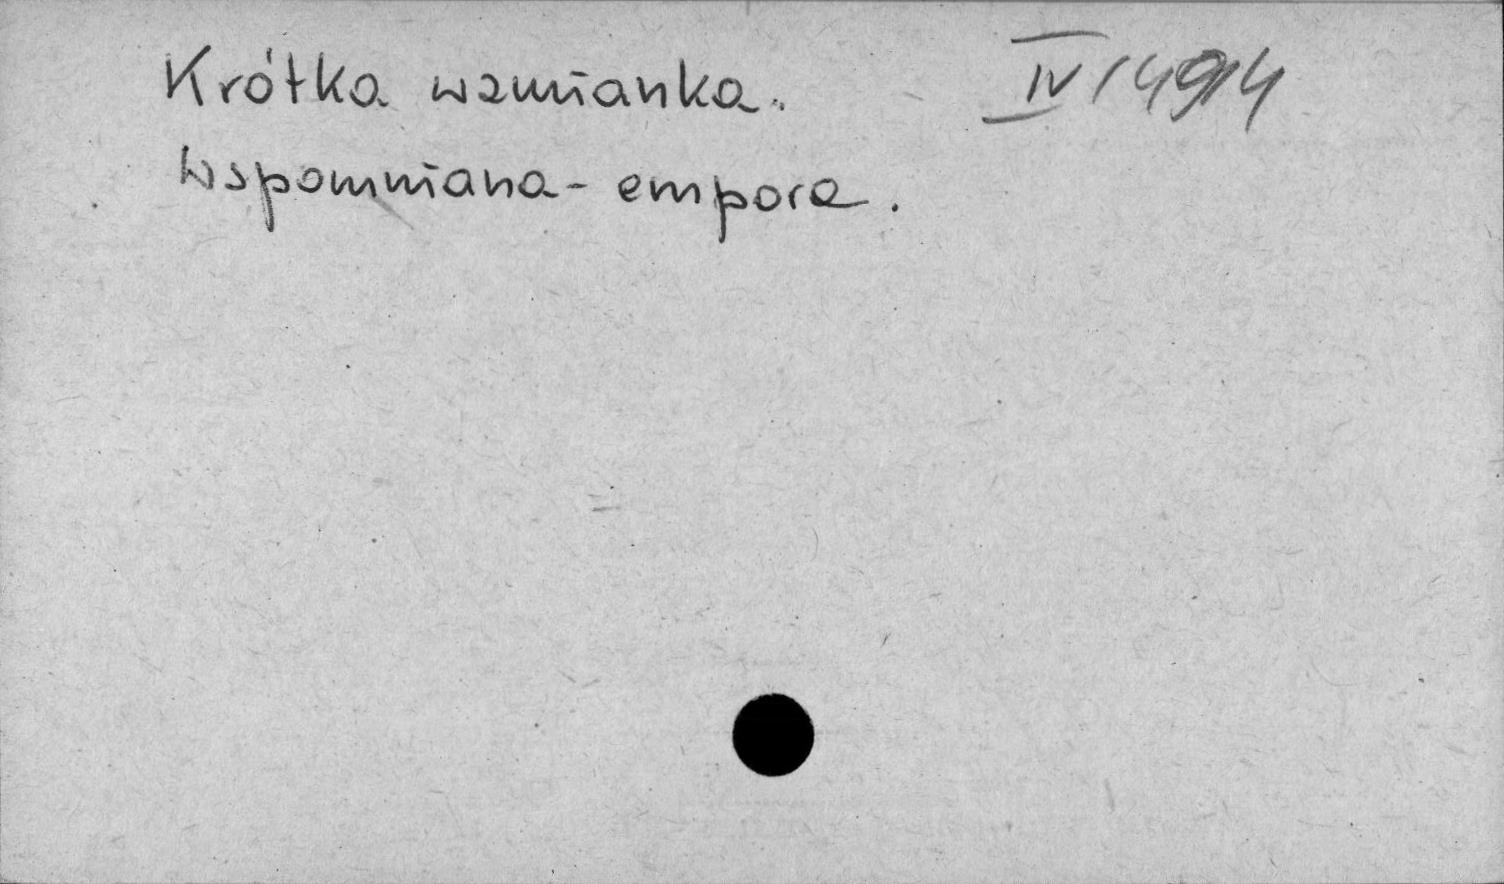 Krótka wzmianka.
IV/4914
Wspomniana - empora.